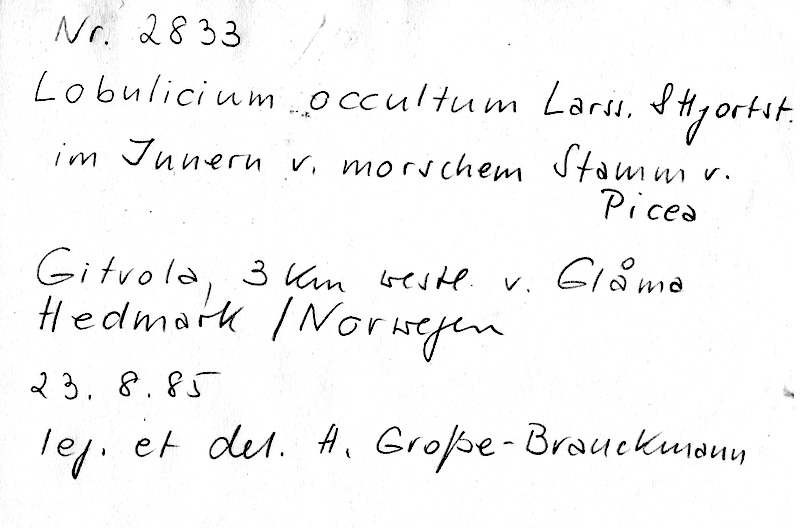 Nr. 2833
Lobulicium occultum Larss. & Hjortst.
im Innern v. morschem Stamm v.
Picea
Gitvola, 3 km westl. v. Glåma
Hedmark / Norwegen
23. 8. 85
leg. et det. H. Große-Brauckmann